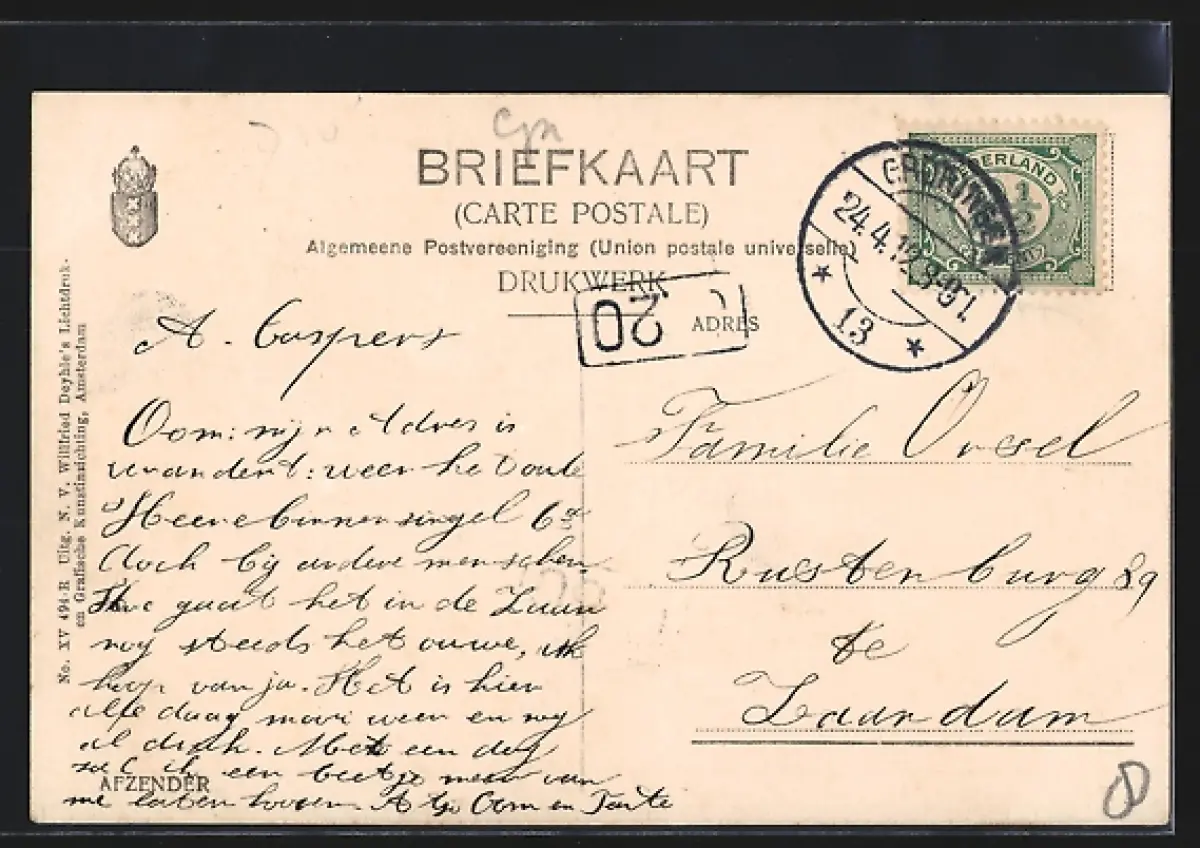 BRIEFKAART
(CARTE POSTALE)
Algemeene Postvereeniging (Union postale universelle)
DRUKWERK
ADRES
NEDERLAND
2½
CENT
GRONINGEN
24.4.12.8-9V.
13
20
No. XV 494-R Uitg. N. V. Willfried Deyhle's Lichtdruk-
en Grafische Kunstinrichting, Amsterdam
A. Caspers
Oom: mijn Adres is
veranderd: weer het oude
Heerebinnensingel 6a
doch bij andere menschen.
Hoe gaat het in de Zaan
nog steeds het ouwe, ik
hoop van ja. Het is hier
alle daag mooi weer en nog
al druk. Met een dag
zal ik een beetje meer van
me laten hooren Oom en Tante
AFZENDER
Familie Orsel
Rustenburg 89
te
Zaandam
8